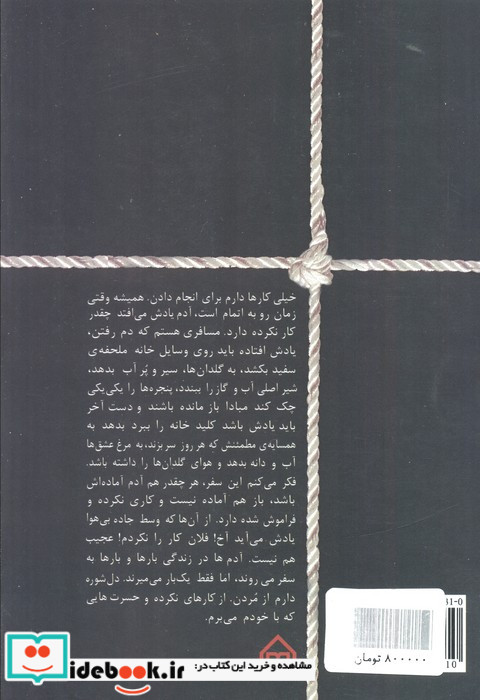 خیلی کارها دارم برای انجام دادن. همیشه وقتی
زمان رو به اتمام است، آدم یادش می‌افتد چقدر
کار نکرده دارد. مسافری هستم که دم رفتن،
یادش افتاده باید روی وسایل خانه ملحفه‌ی
سفید بکشد، به گلدان‌ها، سیر و پُر آب بدهد،
شیر اصلی آب و گاز را ببندد، پنجره‌ها را یکی‌یکی
چک کند مبادا باز مانده باشند و دست آخر
باید یادش باشد کلید خانه را ببرد بدهد به
همسایه‌ی مطمئنش که هر روز سر بزند، به مرغ عشق‌ها
آب و دانه بدهد و هوای گلدان‌ها را داشته باشد.
فکر می‌کنم این سفر، هر چقدر هم آدم آماده‌اش
باشد، باز هم آماده نیست و کاری نکرده و
فراموش شده دارد. از آن‌ها که وسط جاده بی‌هوا
یادش می‌آید آخ! فلان کار را نکردم! عجیب
هم نیست. آدم ها در زندگی بارها و بارها به
سفر می روند، اما فقط یک‌بار می‌میرند. دل‌شوره
دارم از مُردن. از کارهای نکرده و حسرت هایی
که با خودم می‌برم.
31-0
10
۸۰۰۰۰۰ تومان
مشاهده و خرید این کتاب در:
idebook.ir